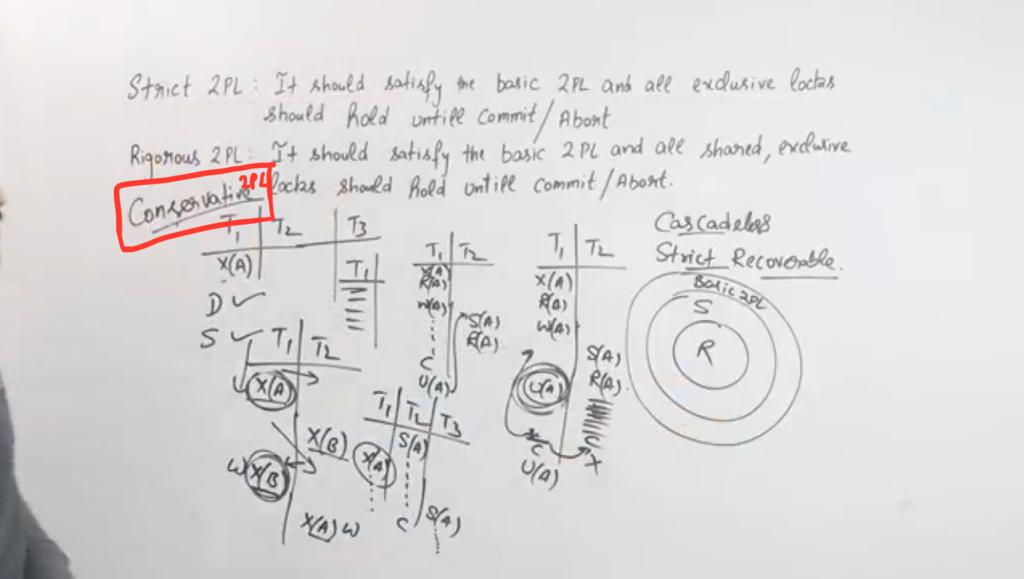 Strict 2PL: It should satisfy the basic 2PL and all exclusive locks
should hold untill Commit/Abort
Rigorous 2PL: It should satisfy the basic 2PL and all shared, exclusive
locks should hold untill Commit/Abort.
Conservative 2PL
T1 T2 T3
X(A)
T1
D ✓
S ✓
T1 T2
X(A)
X(B)
W X(B)
X(A) W
T1 T2
X(A)
R(A)
W(A)
S(A)
R(A)
C
U(A)
T1 T2 T3
S(A)
X(A)
C
S(A)
T1 T2
X(A)
R(A)
W(A)
S(A)
R(A)
U(A)
C
C
U(A)
X
Cascadeless
Strict Recoverable.
Basic 2PL
S
R